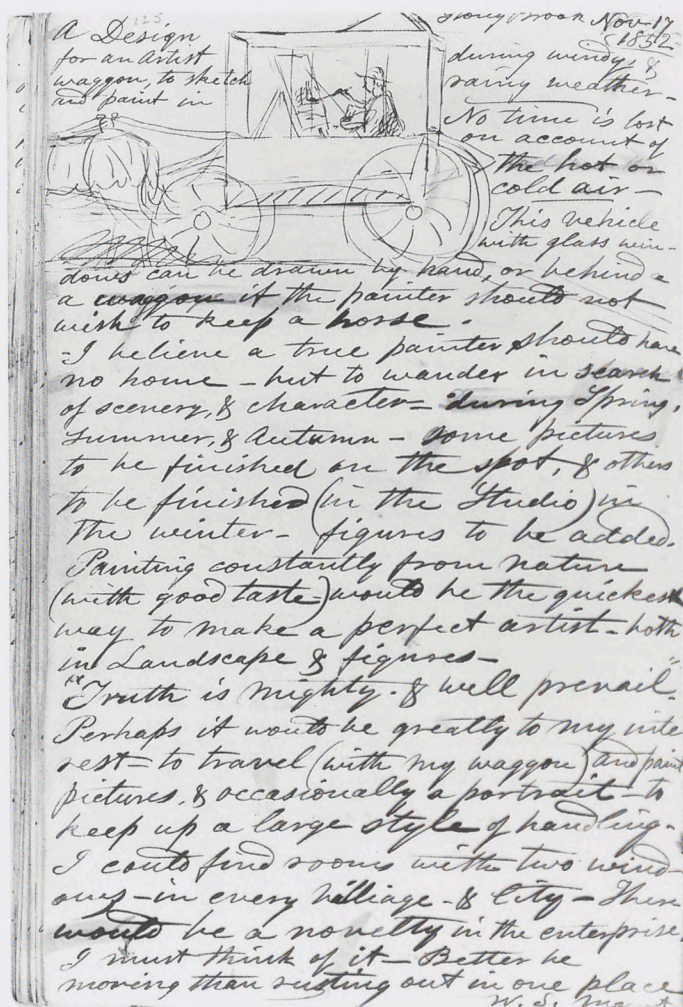 125
Stoney Brook Nov. 17
1852-
A Design
for an Artist
waggon, to sketch
and paint in
during windy, &
rainy weather-
No time is lost
on account of
the hot or
cold air-
This vehicle
with glass win-
dows can be drawn by hand, or behind
a waggon if the painter should not
wish to keep a horse.
-I believe a true painter should have
no home - but to wander in search
of scenery, & character- during Spring,
Summer, & Autumn - some pictures
to be finished on the spot, & others
to be finished (in the Studio) in
the winter- figures to be added.
Painting constantly from nature
(with good taste-) would be the quickest
way to make a perfect artist - both
in Landscape & figures-
"Truth is mighty. & well prevail."
Perhaps it would be greatly to my inte
rest- to travel (with my waggon) and paint
pictures, & occasionally a portrait- to
keep up a large style of handling-
I could find rooms with two wind-
ows - in every villiage - & City - There
would be a novelty in the enterprise,
I must think of it - Better be
moving than rusting out in one place
W. S. Mount